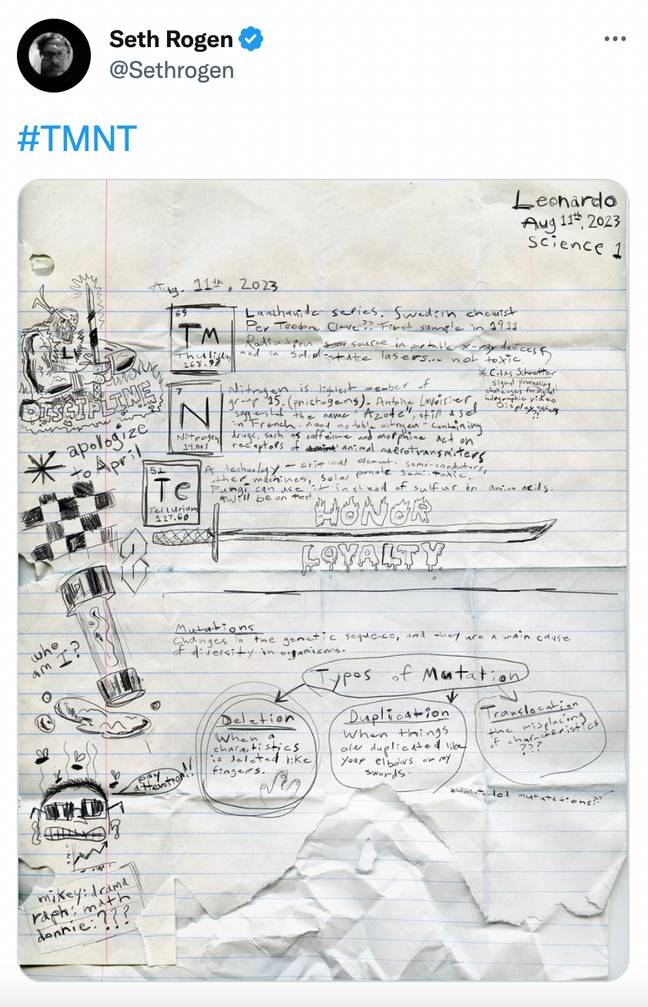 Seth Rogen
@Sethrogen
#TMNT
Leonardo
Aug 11th, 2023
Science 1
Aug. 11th, 2023
69
Tm
Thulium
168.93
Lanthanide series. Swedish chemist
Per Teodor Cleve?? First sample in 1911.
Radiation source in portable x-ray devices
and in solid-state lasers... not toxic
* Colas Schretter
signal processing
challenges for digital
holographic video
Display systems
??
7
N
Nitrogen
14.007
Nitrogen is lightest member of
group 15. (pnictogens). Antoine Lavoisier
suggested the name "Azote" still used
in French. and notable nitrogen-containing
drugs, such as caffeine and morphine act on
receptors of animal neurotransmitters
52
Te
Tellurium
127.60
A technology-critical element. semi-conductors,
other machines, solar panels semi-toxic.
Fungi can use it instead of sulfur in amino acids.
*Will be on test
DISCIPLINE
* apologize
to April
HONOR
LOYALTY
who
am I?
Mutations
Changes in the genetic sequence, and they are a main cause
of diversity in organisms.
Types of Mutation
Deletion
When a
is deleted like
fingers.
Duplication
When things
are duplicated like
your elbows or my
swords.
Translocation
the misplacing
of characteristics
???
pay
attention!!
mikey: drama
raph: math
donnie: ???